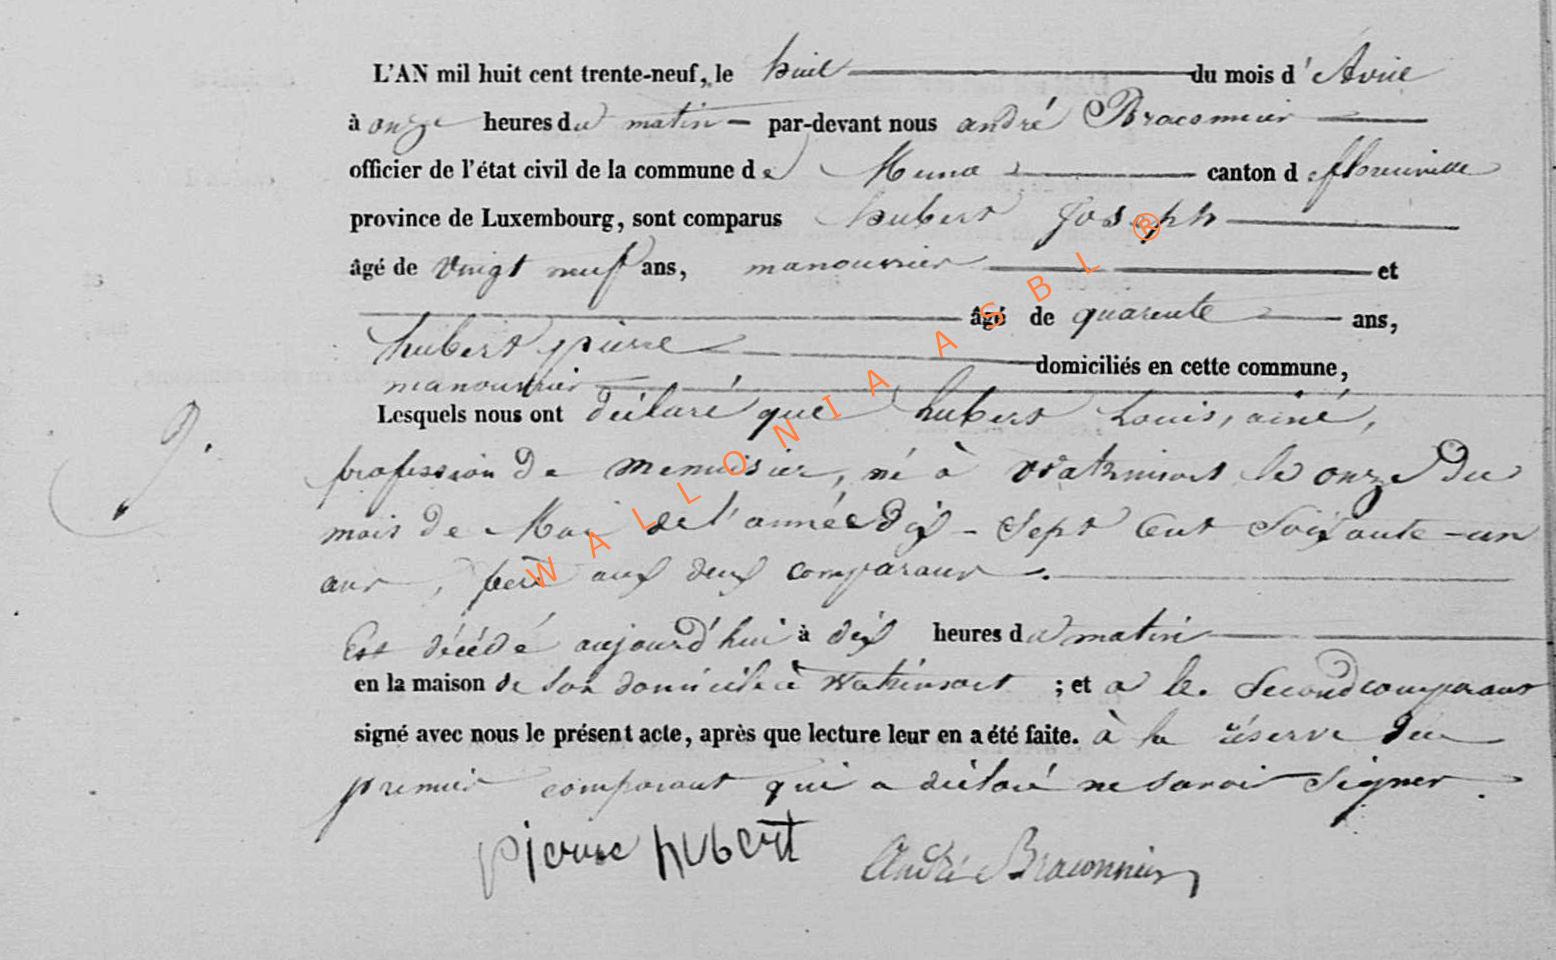 L'AN mil huit cent trente-neuf, le huit du mois d'Avril
à onze heures du matin – par-devant nous andré Braconnier
officier de l'état civil de la commune de Muno canton de florenville
province de Luxembourg, sont comparus hubert Joseph
âgé de vingt neuf ans, manouvrier et
âgé de quarente ans,
hubert pierre
domiciliés en cette commune,
manouvrier
Lesquels nous ont déclaré que hubert Louis, ainé,
profession de menuisier, né à Watrinsart le onze du
9.
mois de Mai de l'année dix - Sept Cent Soixante - un
ans, père aux deux comparans.
Est décédé aujourd'hui à dix heures du matin
en la maison de son domicile à Watrinsart ; et a le Second comparant
signé avec nous le présent acte, après que lecture leur en a été faite. à la réserve du
premier comparant qui a déclaré ne savoir Signer.
pierre hubert André Braconnier
WALLONIA ASBL ®